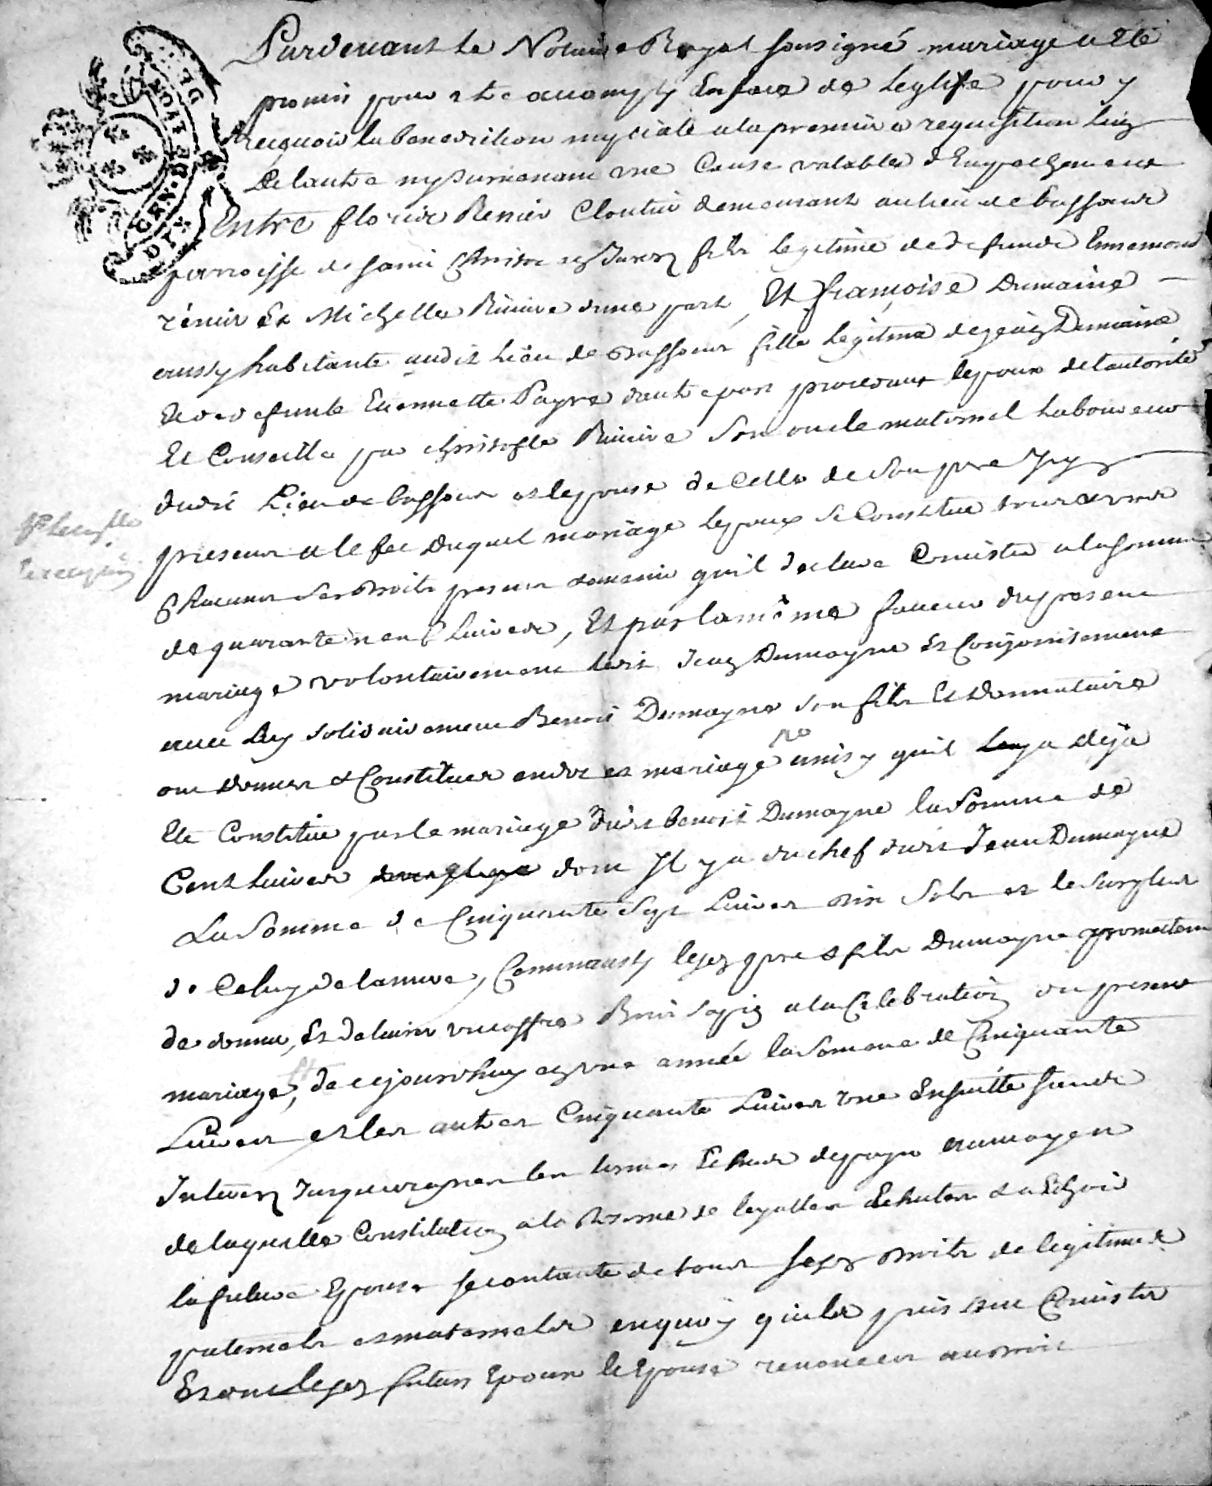 Pardevant Le Notaire Royal soussigné mariage a Eté
promis pour etre accomply En face de Leglise pour y
recepvoir la benediction nuptiale a la premiere requisition lung
de lautre ny survenant une Cause valable d'Empechement
Entre florie Renier Cloutier demeurant au lieu de bassoeur
parroisse de saint Christo en Jarez fils Legitime de defunt Ennemond
rénier Et Michelle Riviere d'une part, Et françoise Dumaine
aussy habitante audit Lieu de Bassoeur fille Legitime de jean Dumaine
Et de defunte Etiennette Payre d'autre part procedant lepoux de l'autorité
Et Conseille par christofle Riviere son oncle maternel Laboureur
dudit Lieu de bassoeur et lepouse de Celle de son pere Icy
present a le fec duquel mariage lepoux se Constitue tous
Chacuns ses droits present avenir quil declare Consister a la somme
de quarante neuf Livres, Et par la même faveur du present
mariage volontairement ledit Jean Dumayne Et Conjointement
avec luy solidairement Benoit Dumayne son fils Et Donnataire
ont donner & Constituer en dot et mariage ainsy quil a déja
Eté Constitué par le mariage dudit benoit Dumayne la somme de
Cent Livres dont Il y a du chef dudit Jean Dumayne
La Somme de Cinquante Sept Livres dix Sols et le surplus
de Celuy de la mere, lesq pere & fils Dumayne promettent
de donner, Et delivrer un coffre Bois sapin a la Celebration du present
mariage, de cejourdhuy en une année la somme de Cinquante
Livres et les autres Cinquante Livres une Ensuitte sans
Interez Jusqu'apres les termes Echus de payer au moyen
de laquelle Constitution a la Reserve de legalles Echutes
la future Epouse se contante de tous ses droits de legitime
paternels et maternels en quoy quils puissent Consister
Et ont lesq futurs Epoux lepouse renoncer au droit
GEN. DE
LYON